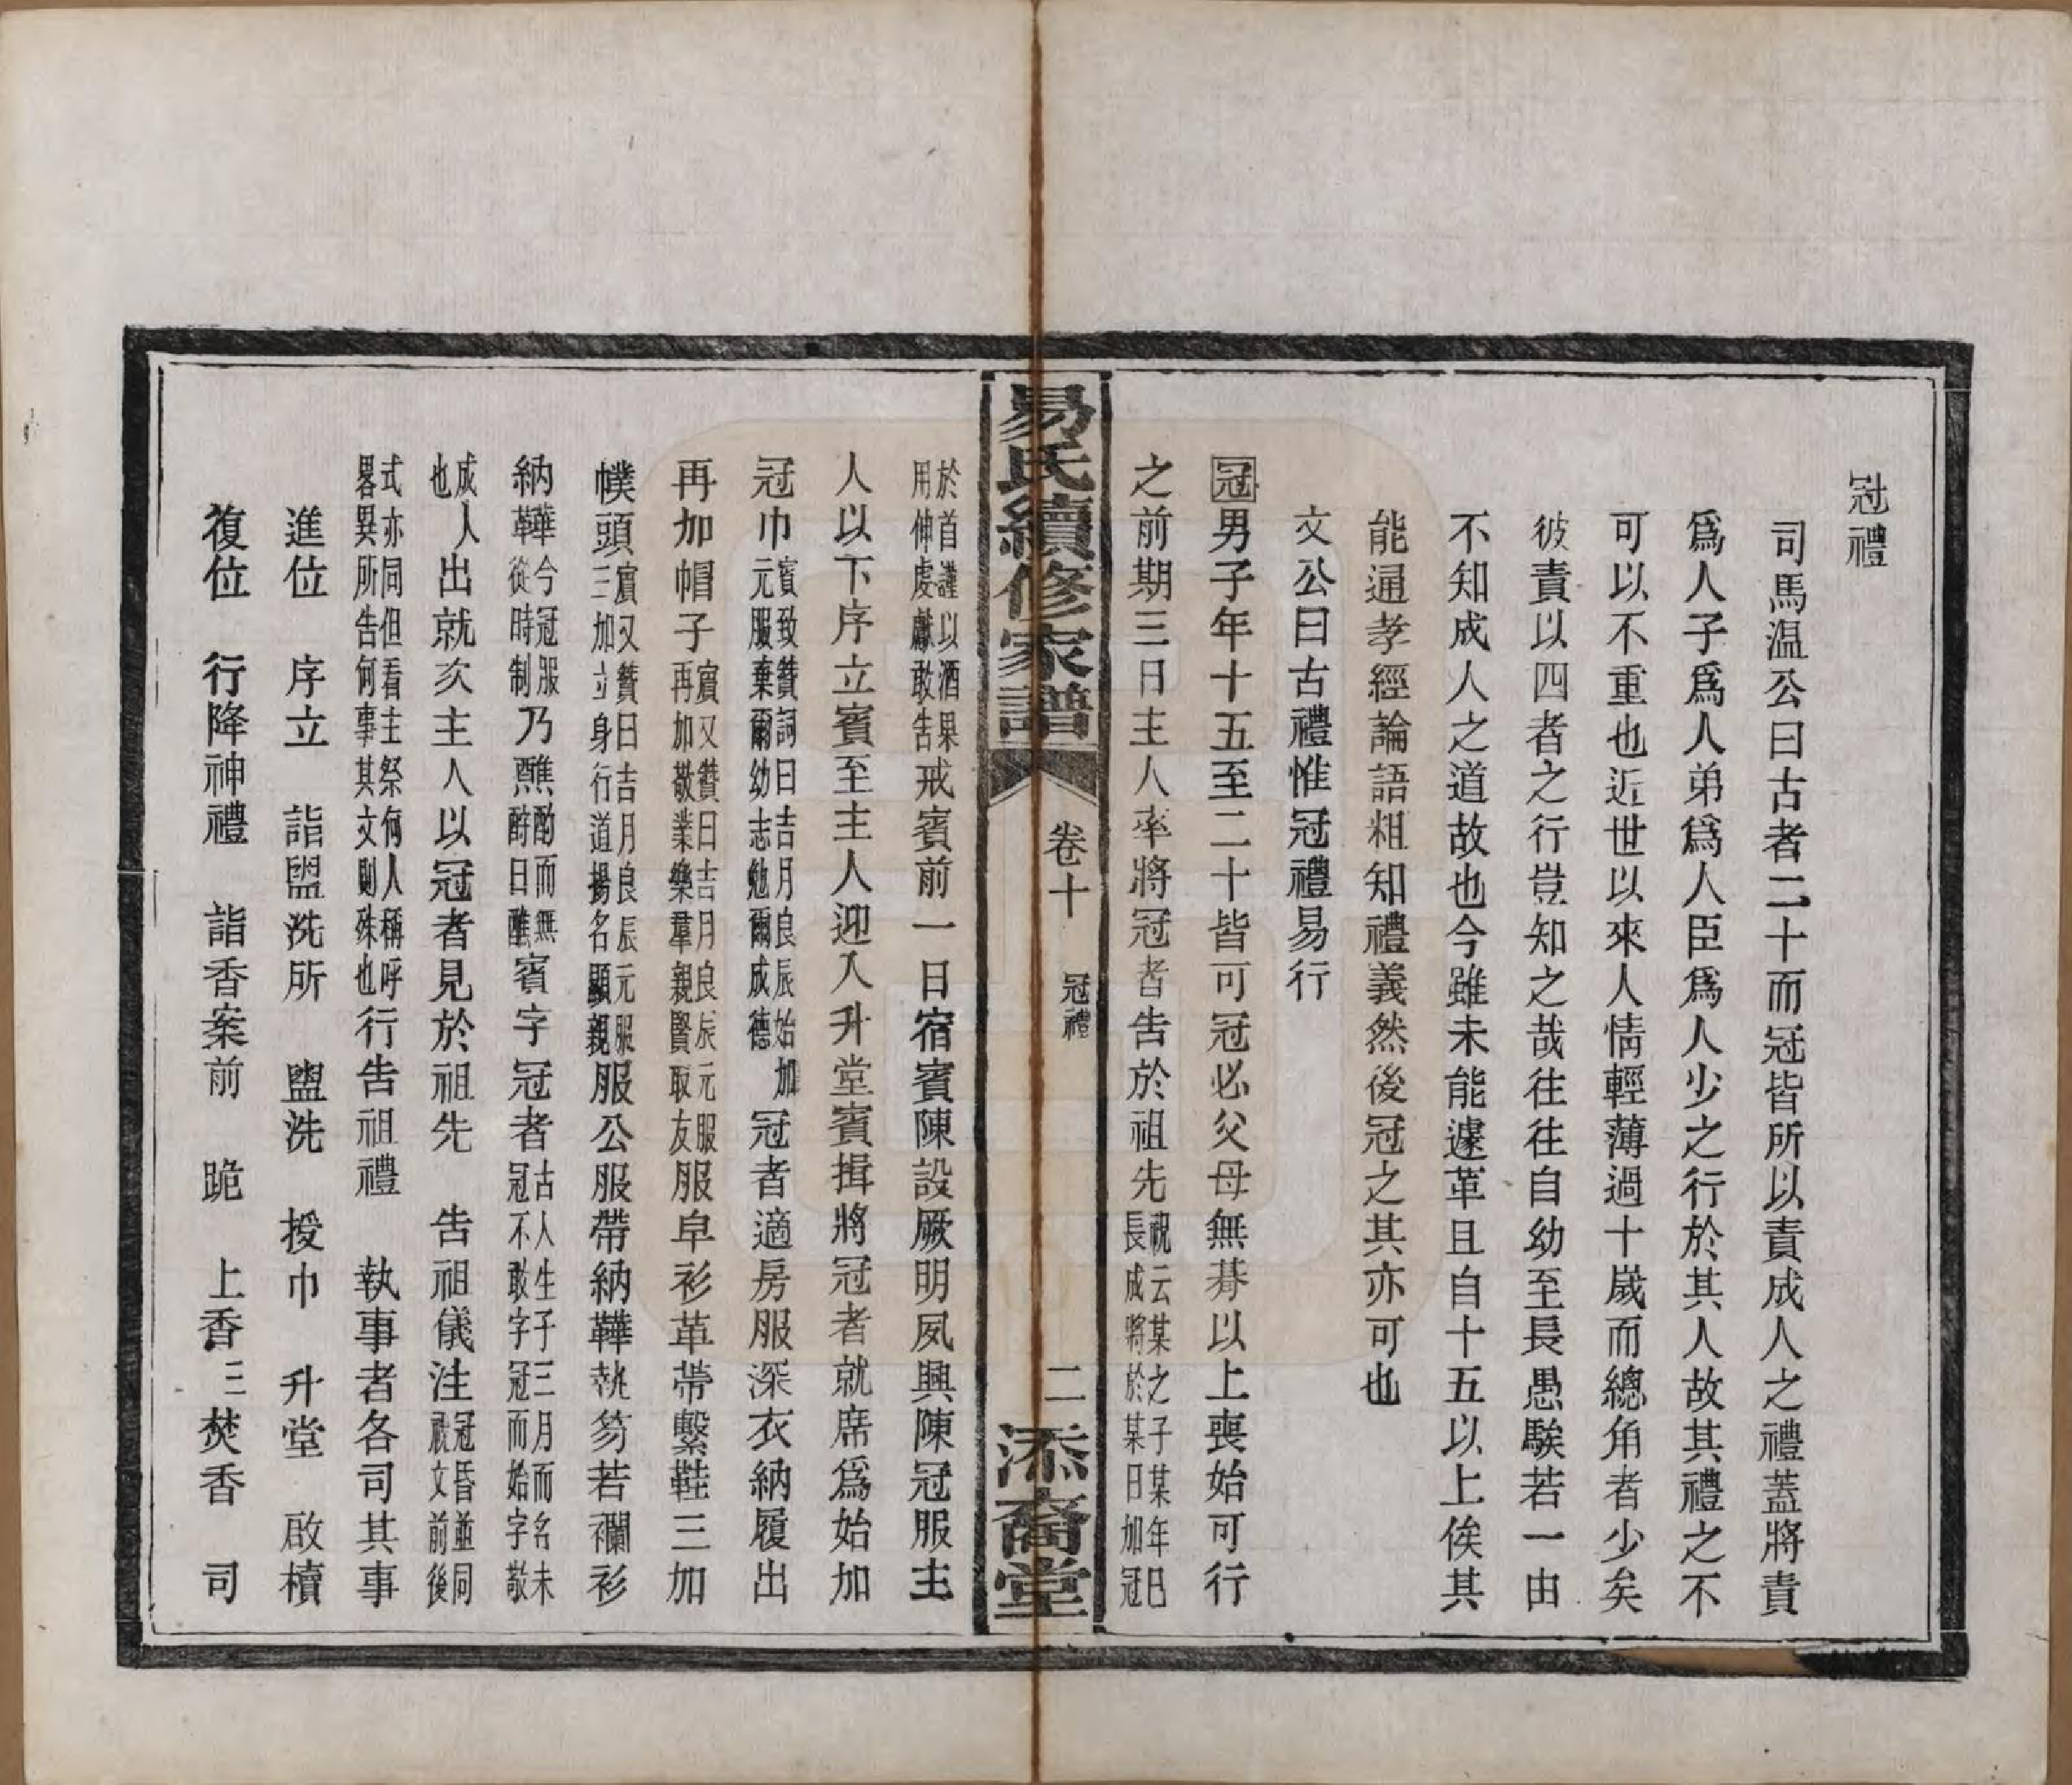 冠禮
司馬温公曰古者二十而冠皆所以責成人之禮蓋將責
爲人子爲人弟爲人臣爲人少之行於其人故其禮之不
可以不重也近世以來人情輕薄過十歲而總角者少矣
彼責以四者之行豈知之哉往往自幼至長愚騃若一由
不知成人之道故也今雖未能遽革且自十五以上俟其
能通孝經論語粗知禮義然後冠之其亦可也
文公曰古禮惟冠禮易行
冠男子年十五至二十皆可冠必父母無朞以上喪始可行
之前期三日主人率將冠者告於祖先祝云某之子某年已長成將於某日加冠
易氏續修家譜 卷十 冠禮 二 添裔堂
於首謹以酒果用伸虔獻敢告戒賓前一日宿賓陳設厥明夙興陳冠服主
人以下序立賓至主人迎入升堂賓揖將冠者就席爲始加
冠巾賓致贊詞曰吉月良辰始加元服棄爾幼志勉爾成德冠者適房服深衣納履出
再加帽子賓又贊曰吉月良辰元服再加敬業樂羣親賢取友服皁衫革帶繫鞋三加
幞頭賓又贊曰吉月良辰元服三加立身行道揚名顯親服公服帶納鞾執笏若襴衫
納鞾今冠服從時制乃醮酌而無酧曰醮賓字冠者古人生子三月而名未冠不敢字冠而始字敬
成人也出就次主人以冠者見於祖先 告祖儀注冠昏並同祝文前後
式亦同但看主祭何人稱呼畧異所告何事其文則殊也行告祖禮 執事者各司其事
進位 序立 詣盥洗所 盥洗 授巾 升堂 啟櫝
復位 行降神禮 詣香案前 跪 上香三焚香 司